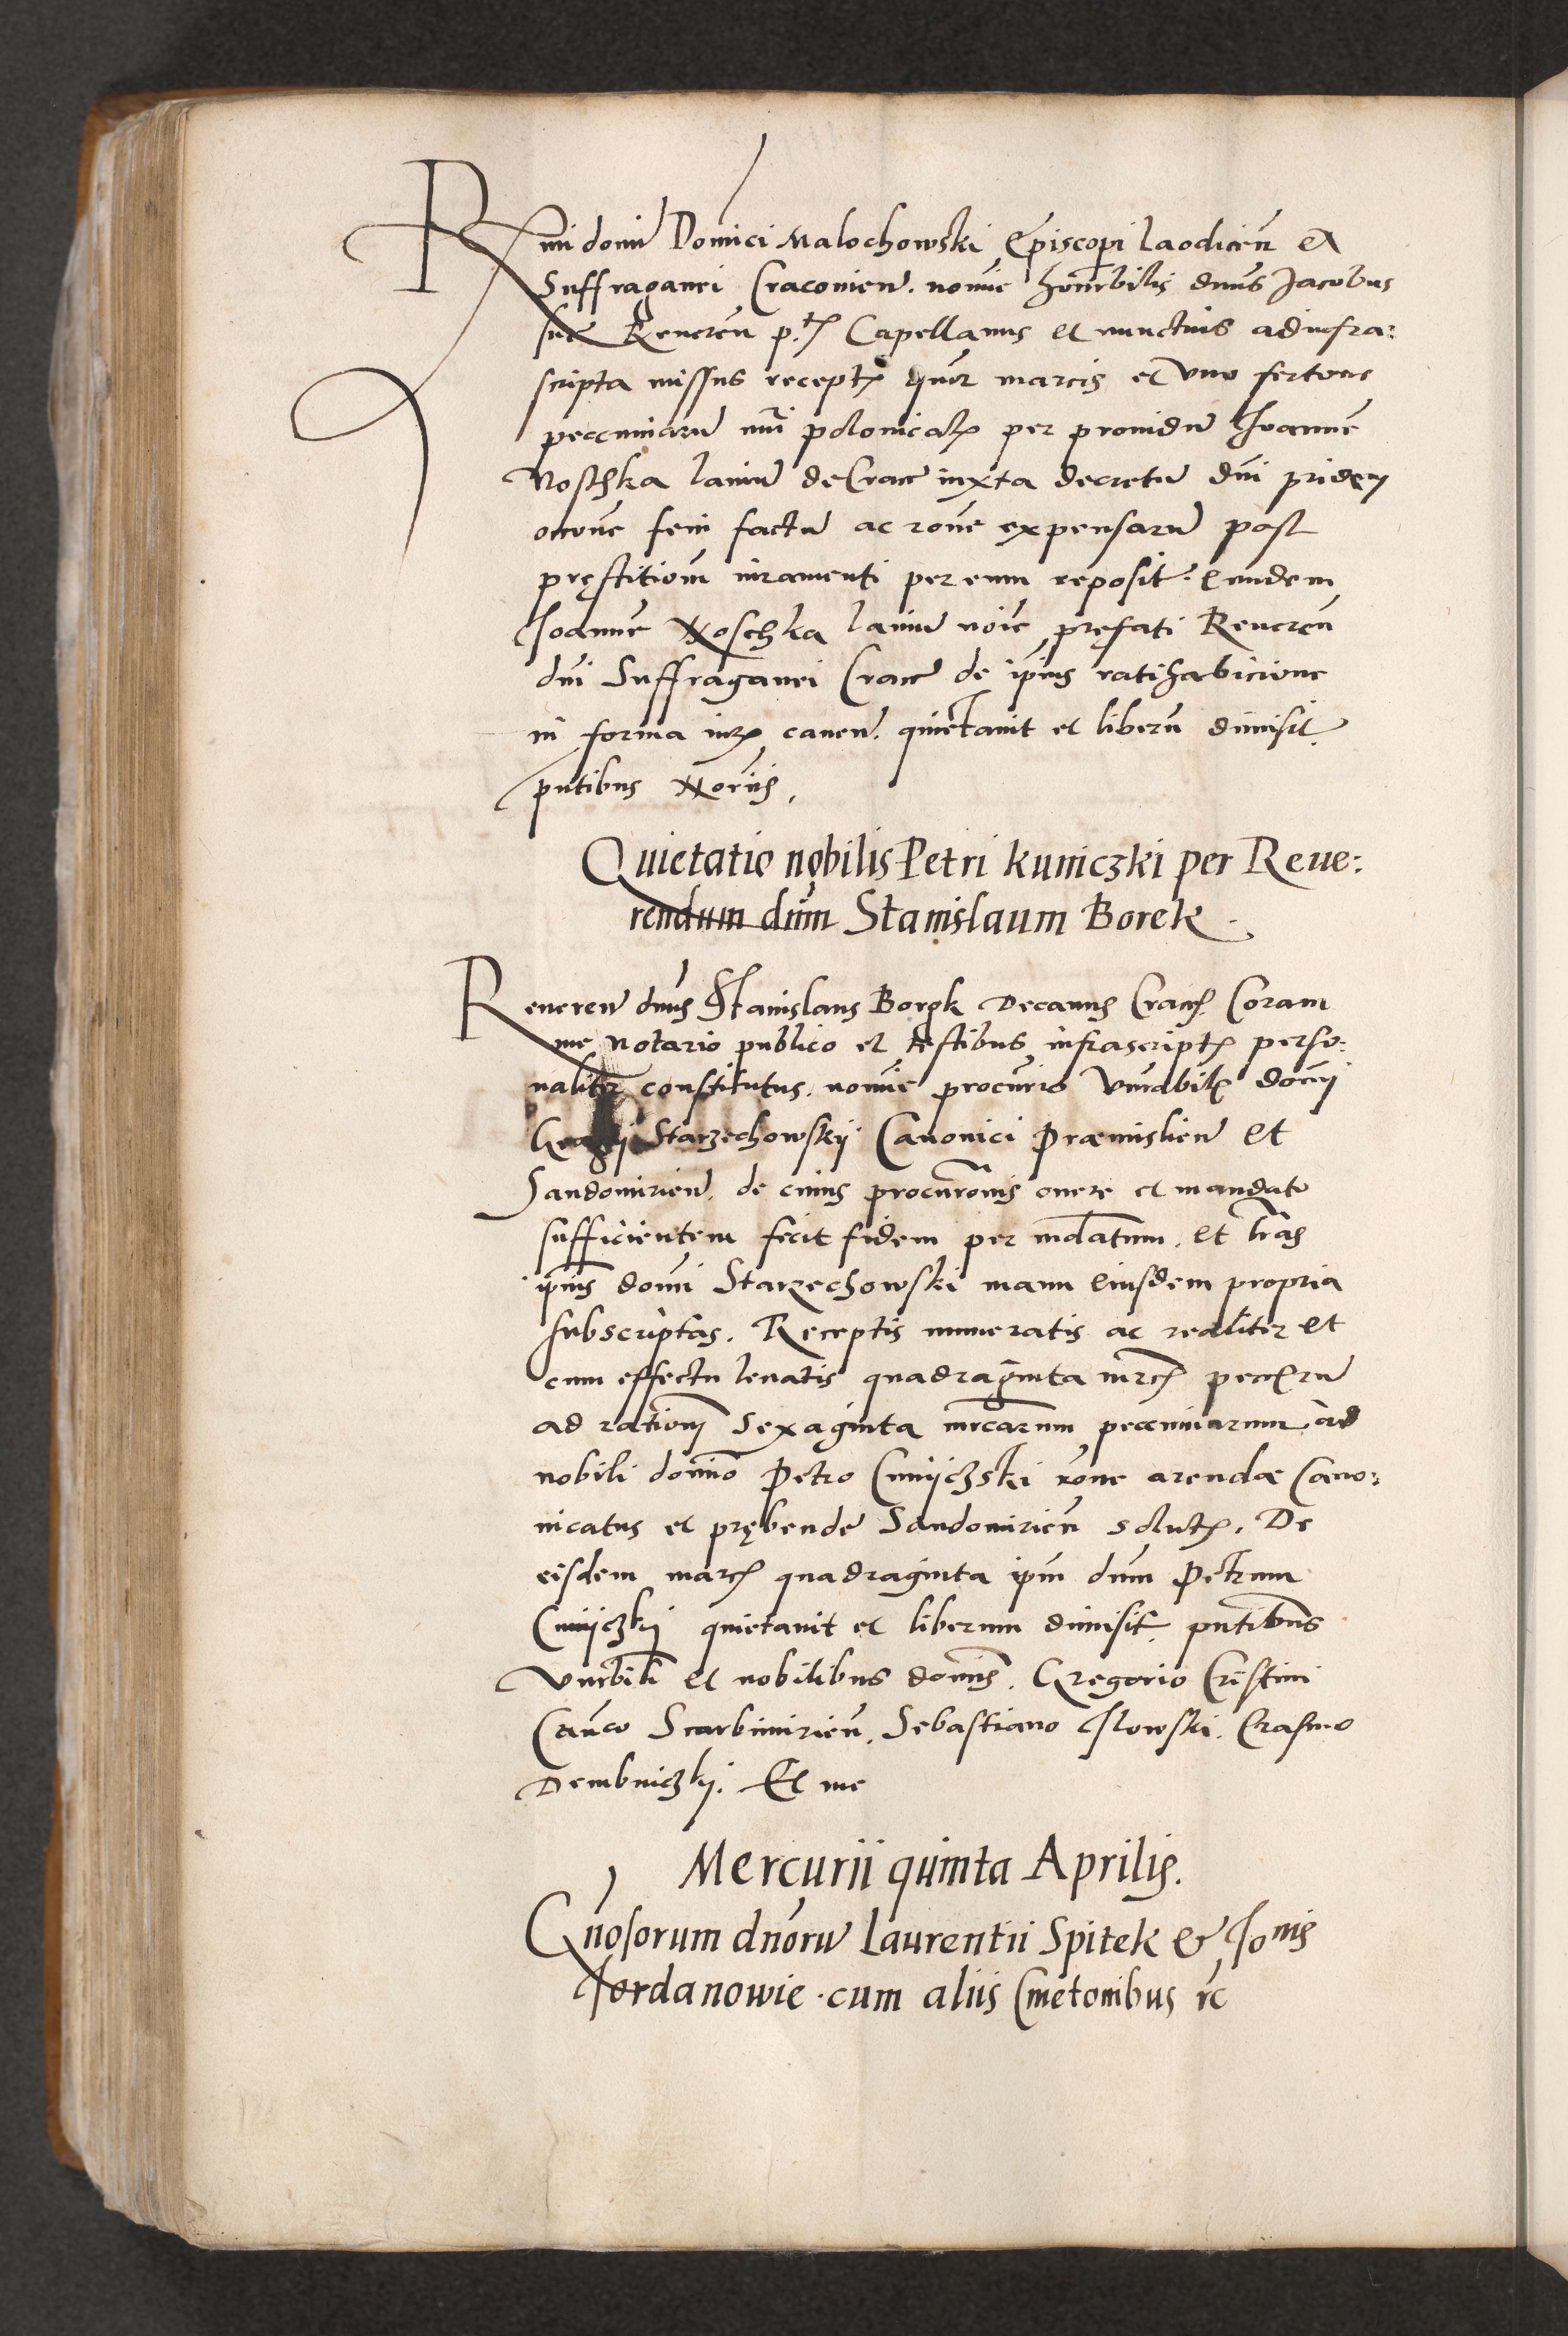 Rmi domi Domici Malochowski Episcopi Laodiceñ et
Suffraganei Cracovien. nomie honorabilis dnus Jacobus
sue Reverẽn p.te Capellanus et nunctius ad infra:
scripta missus recept quor marcis et vno fertone
peccuniarũ mri polonicalis per providũ Joannẽ
Noschka laniũ de Crac iuxta decretũ dni pridem
factũ ac rone expensarũ post
pręstitiom iuramenti per eum reposit. eundem
Joannẽ Noschka laniũ noie pręfati Reverẽn
dni Suffraganei Crac de ipius ratihabicione
in forma iuris caven. quietavit et liberũ dimisit
pntibus
Quietatio nobilis Petri Kuniczki per Reue:
rendum dnm Stanislaum Borek.
Reveren dnus Stanislaus Borek Decanus Crac. Coram
me Notario publico et testibus infrascript perso:
naliter constitutus. nomie procurio Vnrabilis domi
Starzechowskij Canonici Præmislien et
Sandomirien. de cuius procuronis onere et mandato
sufficientem fecit fidem per mdatum. et lras
ipius domi Starzechowski manu eiusdem propria
subscriptas. Receptis numeratis ac realiter et
cum effectu levatis quadraginta mrc peccrũ
ad rationem Sexaginta mrcarum peccuniarum ad
nobili domino Petro Cunijczski rone arendæ Cano:
nicatus et prębende Sandomirien solut. De
eisdem marc quadraginta ipm dnm Petrum
Cunijczkij quietavit et liberum dimisit. pntibus
Vnrbili et nobilibus domis. Gregorio Cristini
Canco Scarbimirieñ. Sebastiano Ilowski. Erasmo
Dembniczkij. Et me
Mercurii quinta Aprilis.
Gnosorum dnorũ Laurentii Spitek & Jonis
Jordanowie. cum aliis Cmetonibus rc